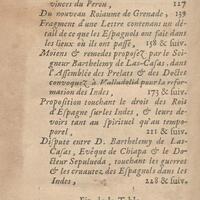 vinces du Perou, 127
Du nouveau Roiaume de Grenade, 139
Fragment d'une Lettre contenant un dé-
tail de ce que les Espagnols ont fait dans
les lieux où ils ont passé, 158 & suiv.
Moiens & remedes proposez par le Sei-
gneur Barthelemy de Las-Casas, dans
l'Assemblée des Prelats & des Docteurs
convoquez à Valladolid pour la refor-
mation des Indes, 173 & suiv.
Proposition touchant le droit des Rois
d'Espagne sur les Indes, & leurs de-
voirs tant au spirituel qu'au tempo-
porel, 211 & suiv.
Dispute entre D. Barthelemy de Las-
Casas, Evêque de Chiapa & le Do-
cteur Sepulueda, touchant les guerres
& les cruautez des Espagnols dans les
Indes, 228 & suiv.